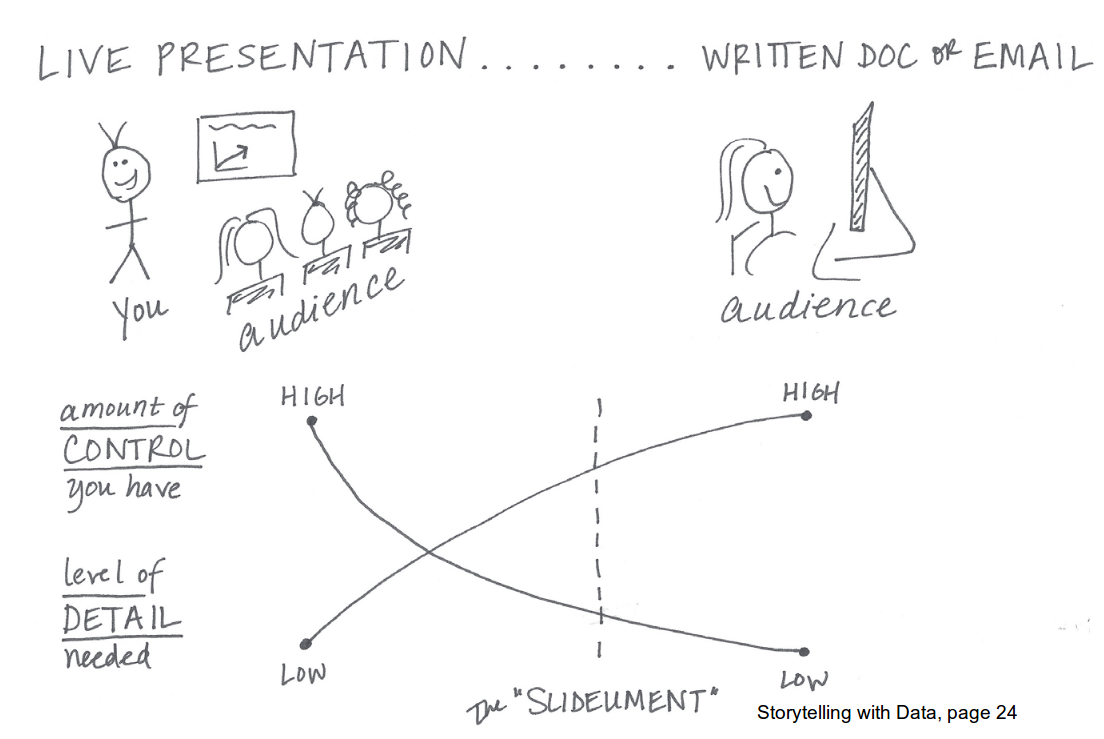 LIVE PRESENTATION......... WRITTEN DOC or EMAIL
you
audience
audience
amount of
CONTROL
you have
HIGH
HIGH
level of
DETAIL
needed
LOW
LOW
The "SLIDEUMENT"
Storytelling with Data, page 24